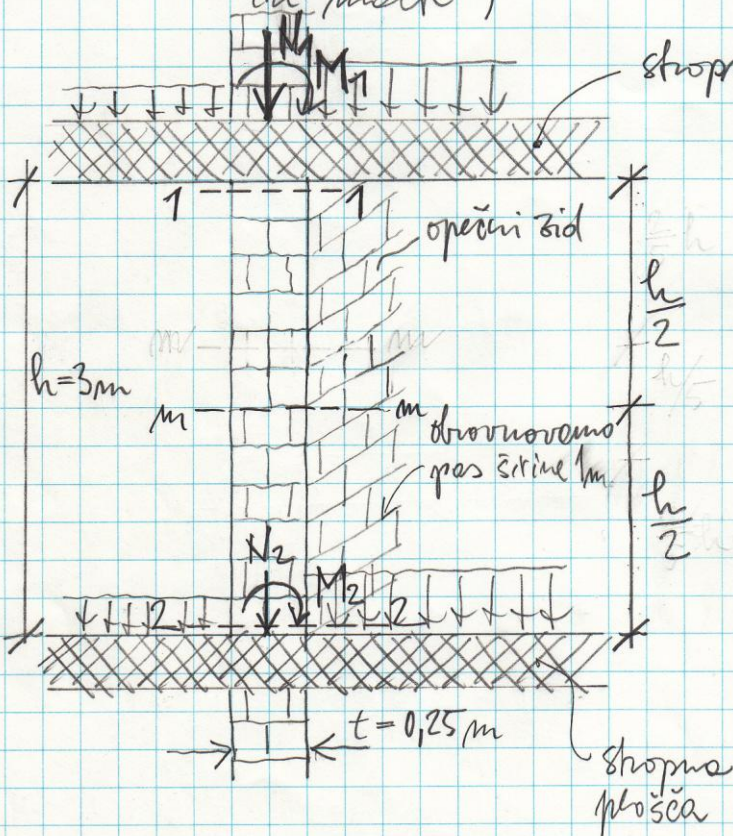 N₁
M₁
1 1
opečni zid
h
2
h=3m
m m
obravnavamo
pas širine 1m
h
2
N₂
M₂
2 2
t=0,25m
stropna
plošča